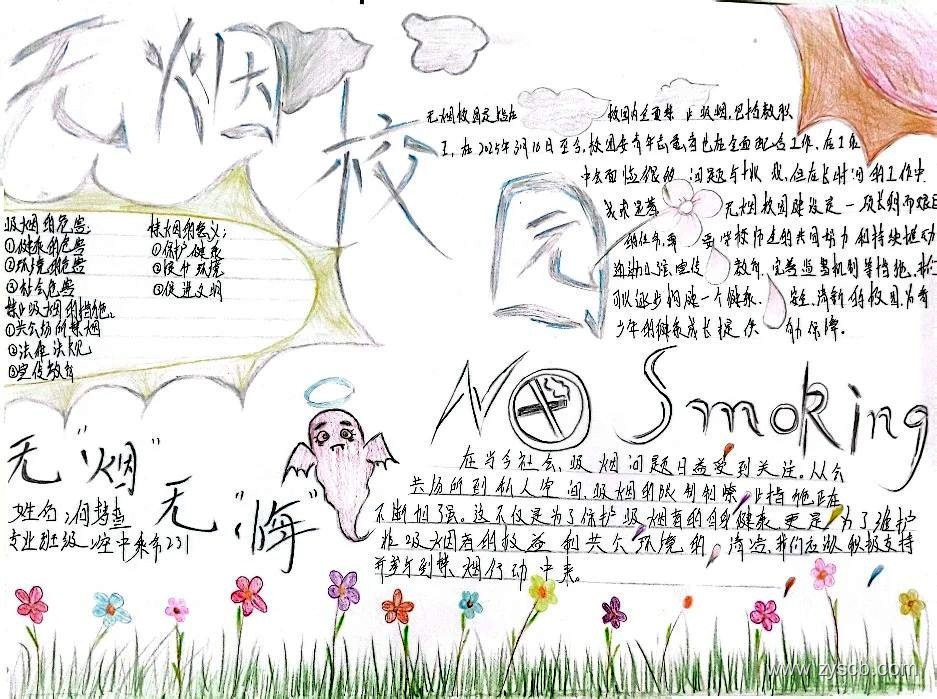 无烟校园
无烟校园是指在 校园内全面禁止吸烟,包括教职
工,在2025年3月10日至今,校园安青年志愿者也在全面配合工作,在工作
中会面临很多 问题与挑战,但在长时间的工作中
无烟校园建设是一项长期而艰巨
的任务,需 要学校师生的共同努力和持续推动
通过加强宣传 教育、完善监督机制等措施,我们
可以逐步构建一个健康、 安全、清新的校园为青
少年的健康成长提供 有力保障。
吸烟的危害:
①健康的危害
②环境的危害
③社会危害
禁止吸烟的措施。
①公共场所禁烟
②法律法规
③宣传教育
禁烟的意义:
①保护健康
②提升环境
③促进文明
NO Smoking
在当今社会,吸烟问题日益受到关注。从公
共场所到私人空间,吸烟的限制和禁止措施正在
不断加强。这不仅是为了保护吸烟者的自身健康,更是为了维护
非吸烟者的权益和公共环境的 清洁,我们应该积极支持
并参与到禁烟行动中来。
无"烟"
无"悔"
姓名:
专业班级:空中乘务231
www.zyscb.com